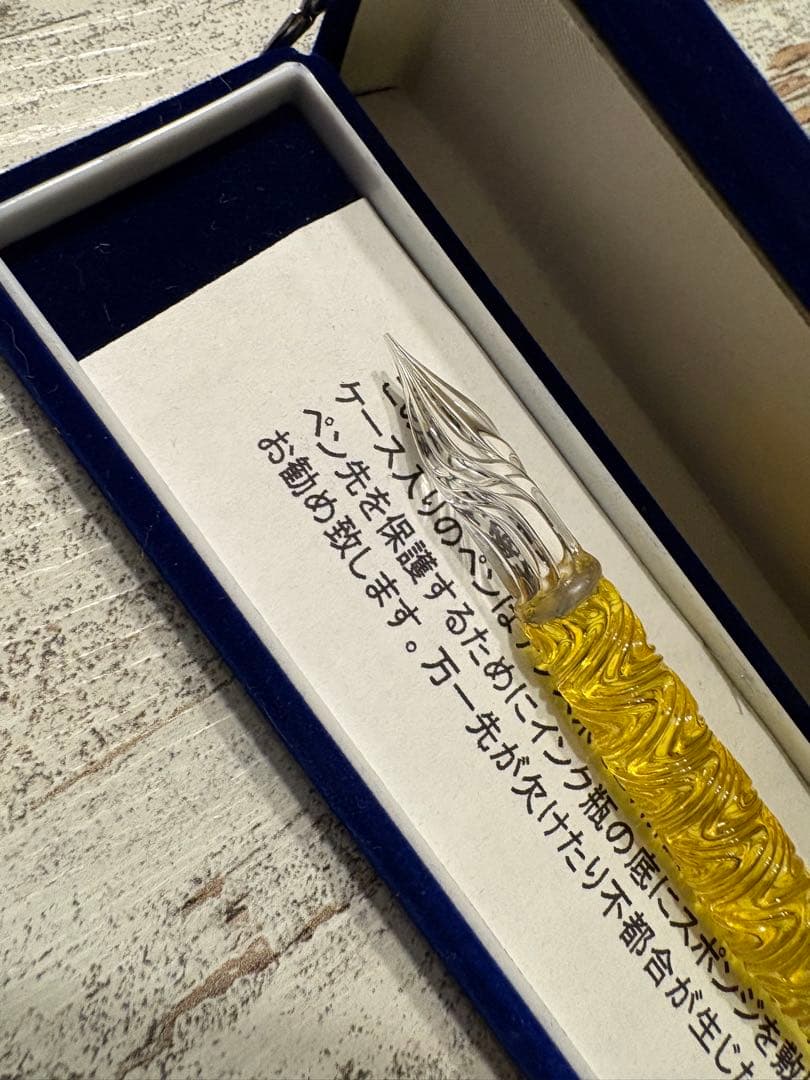 この
ケース入りのペンは
ペン先を保護するためにインク瓶の底にスポンジを敷
お勧め致します。万一先が欠けたり不都合が生じた